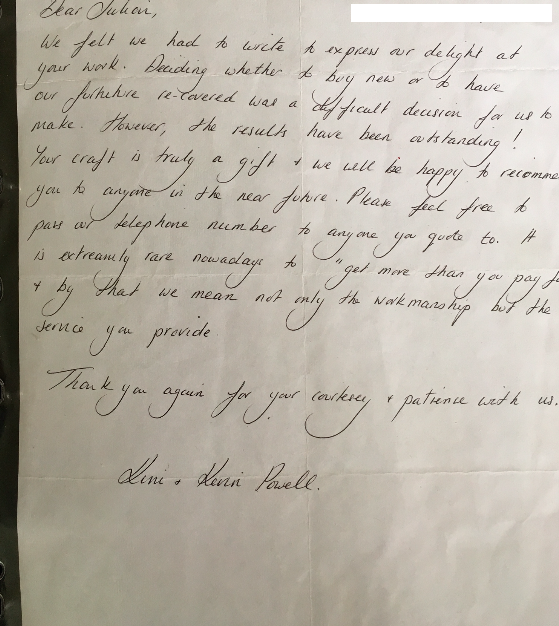 Dear Julian,
We felt we had to write to express our delight at
your work. Deciding whether to buy new or to have
our furniture re-covered was a difficult decision for us to
make. However, the results have been outstanding!
Your craft is truly a gift & we will be happy to recomme
you to anyone in the near future. Please feel free to
pass our telephone number to anyone you quote to. It
is extreamly rare nowadays to "get more than you pay fo
& by that we mean not only the workmanship but the
service you provide.
Thank you again for your courtesey & patience with us.
& Kevin Powell.